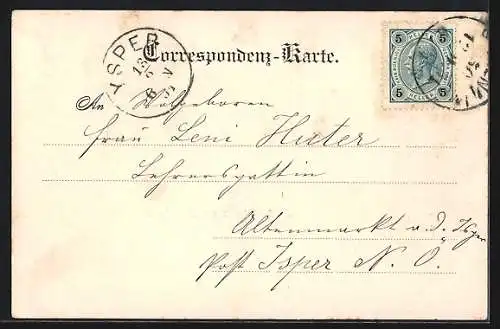 Correspondenz-Karte.
YSPER
5 5
5 5
An Wolgeboren
Frau Leni Huter
Lehrersgattin
Altenmarkt a. d. Isper
Post Isper N. Ö.